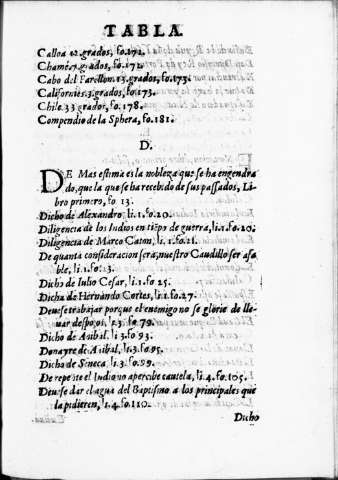 TABLA.
Calloa 12. grados, fo. 172.
Chame 7. grados, fo. 172.
Cabo del Farellon 13. grados, fo. 173.
Californies 3. grados, fo. 173.
Chile 33 grados, fo. 178.
Compendio de la Sphera, fo. 181.
D.
DE Mas estima es la nobleza que se ha engendra
do, que la que se ha recebido de sus passados, Li
bro primero, fo 13.
Dicho de Alexandro li. 1. fo. 20.
Diligencia de los Indios en tiēpo de guerra, li. 1. fo. 20.
Diligencia de Marco Caton, li. 1. fo. 21.
De quanta consideracion sera, nuestro Caudillo ser afa
ble, li. 1. fo. 23.
Dicho de Iulio Cesar, li. 1. fo 25.
Dicho de Hernando Cortes, li. 1. fo. 27.
Deuese trabajar porque el enemigo no se glorie de lle
uar despojos, li. 3. fo. 79.
Dicho de Anibal, li 3. fo. 93.
Donayre de Anibal, li. 3. fo. 95.
Dicho de Seneca, li. 3. fo. 99.
De repente el Indio no apercibe cautela, li. 4. fo. 105.
Deuese dar el agua del Baptismo a los principales que
la pidieren, li. 4. fo. 110.
Dicho